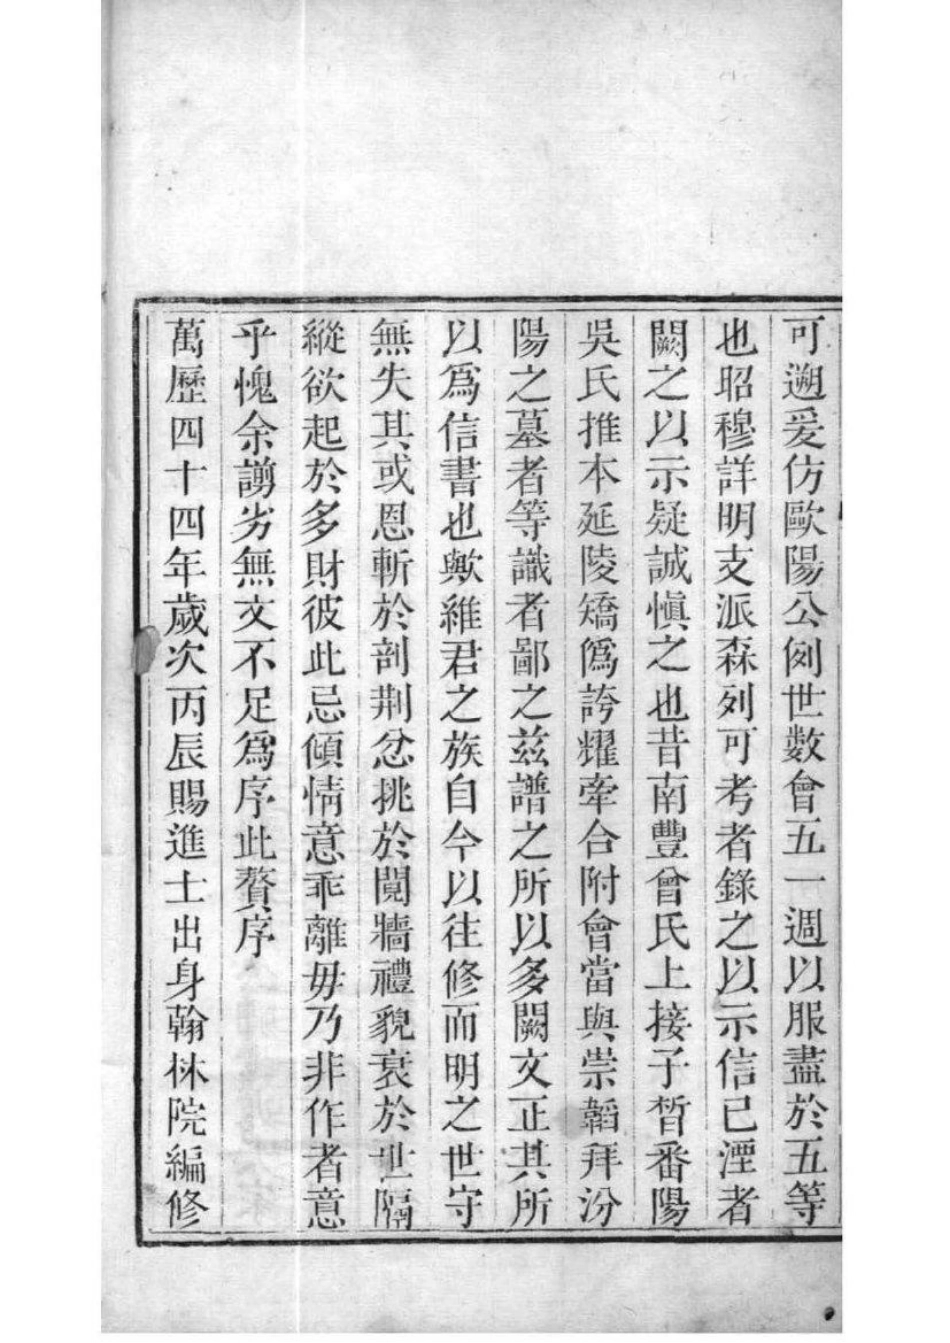 可遡爰仿歐陽公例世數會五一週以服盡於五等
也昭穆詳明支派森列可考者錄之以示信已湮者
闕之以示疑誠愼之也昔南豐曾氏上接子晳番陽
吳氏推本延陵矯僞誇耀牽合附會當與崇韜拜汾
陽之墓者等識者鄙之茲譜之所以多闕文正其所
以爲信書也歟維君之族自今以往修而明之世守
無失其或恩斬於剖荆忿挑於鬩牆禮貌衰於世隔
縱欲起於多財彼此忌傾情意乖離毋乃非作者意
乎愧余謭劣無文不足爲序此贅序
萬歷四十四年歲次丙辰賜進士出身翰林院編修